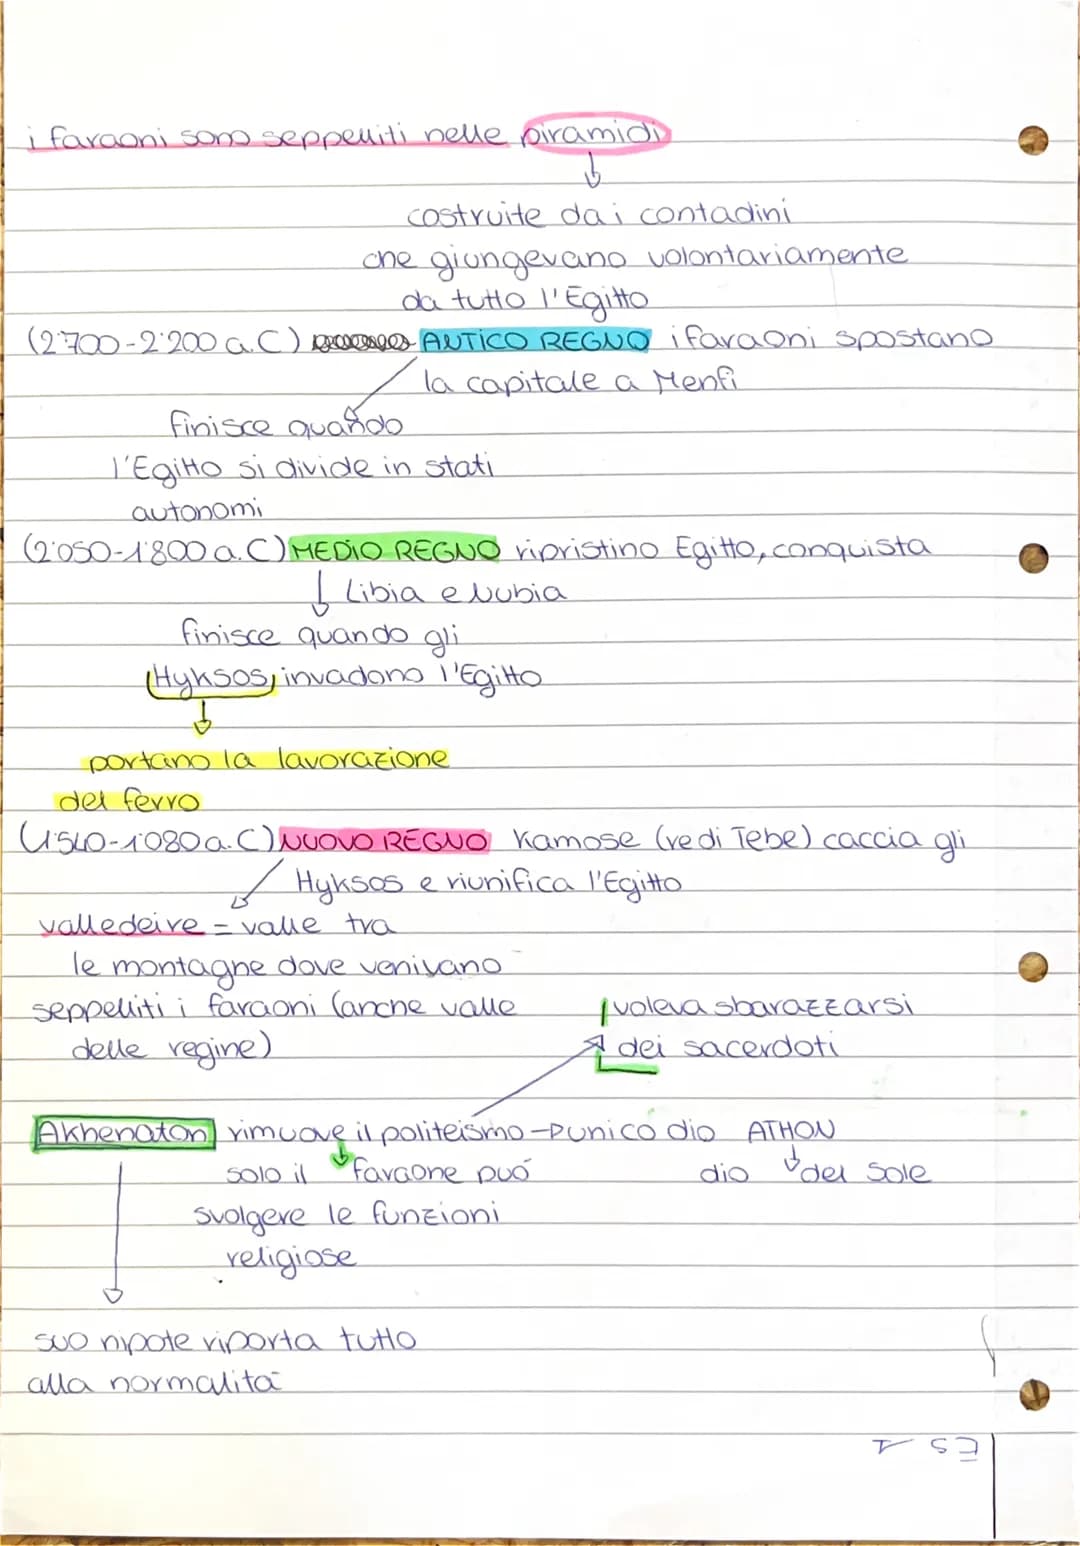 i faraoni sono seppelliti nelle piramidi
costruite dai contadini
che giungevano volontariamente
da tutto l'Egitto
(2'700-2'200 a.C) ANTICO REGNO i faraoni spostano
la capitale a Menfi
finisce quando
l'Egitto si divide in stati
autonomi
(2'050-1'800 a.C) MEDIO REGNO ripristino Egitto, conquista
Libia e Nubia
finisce quando gli
Hyksos, invadono l'Egitto
portano la lavorazione
del ferro
(1'540-1'080 a.C) NUOVO REGNO Kamose (re di Tebe) caccia gli
Hyksos e riunifica l'Egitto
valle dei re = valle tra
le montagne dove venivano
seppelliti i faraoni (anche valle
delle regine)
voleva sbarazzarsi
dei sacerdoti
Akhenaton rimuove il politeismo → unico dio ATHON
solo il faraone può dio del sole
svolgere le funzioni
religiose
suo nipote riporta tutto
alla normalità
ES 1